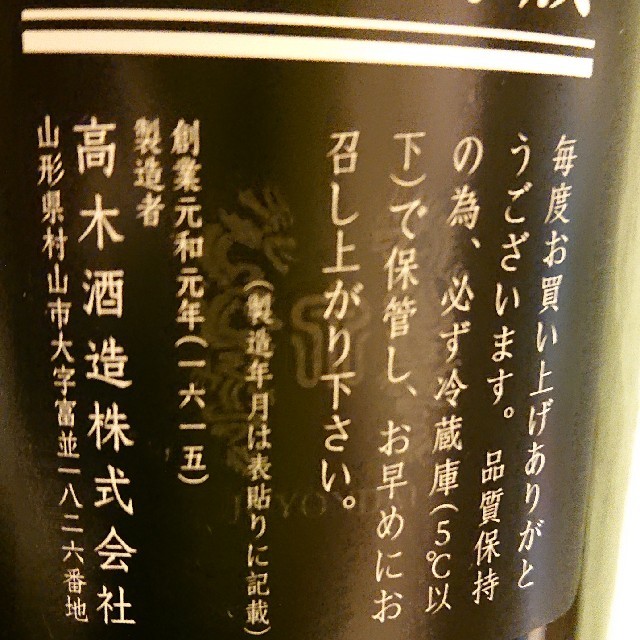 毎度お買い上げありがと
うございます。品質保持
の為、必ず冷蔵庫(5℃以
下)で保管し、お早めにお
召し上がり下さい。
(製造年月は表貼りに記載)
創業元和元年(一六一五)
製造者
高木酒造株式会社
山形県村山市大字富並一八二六番地